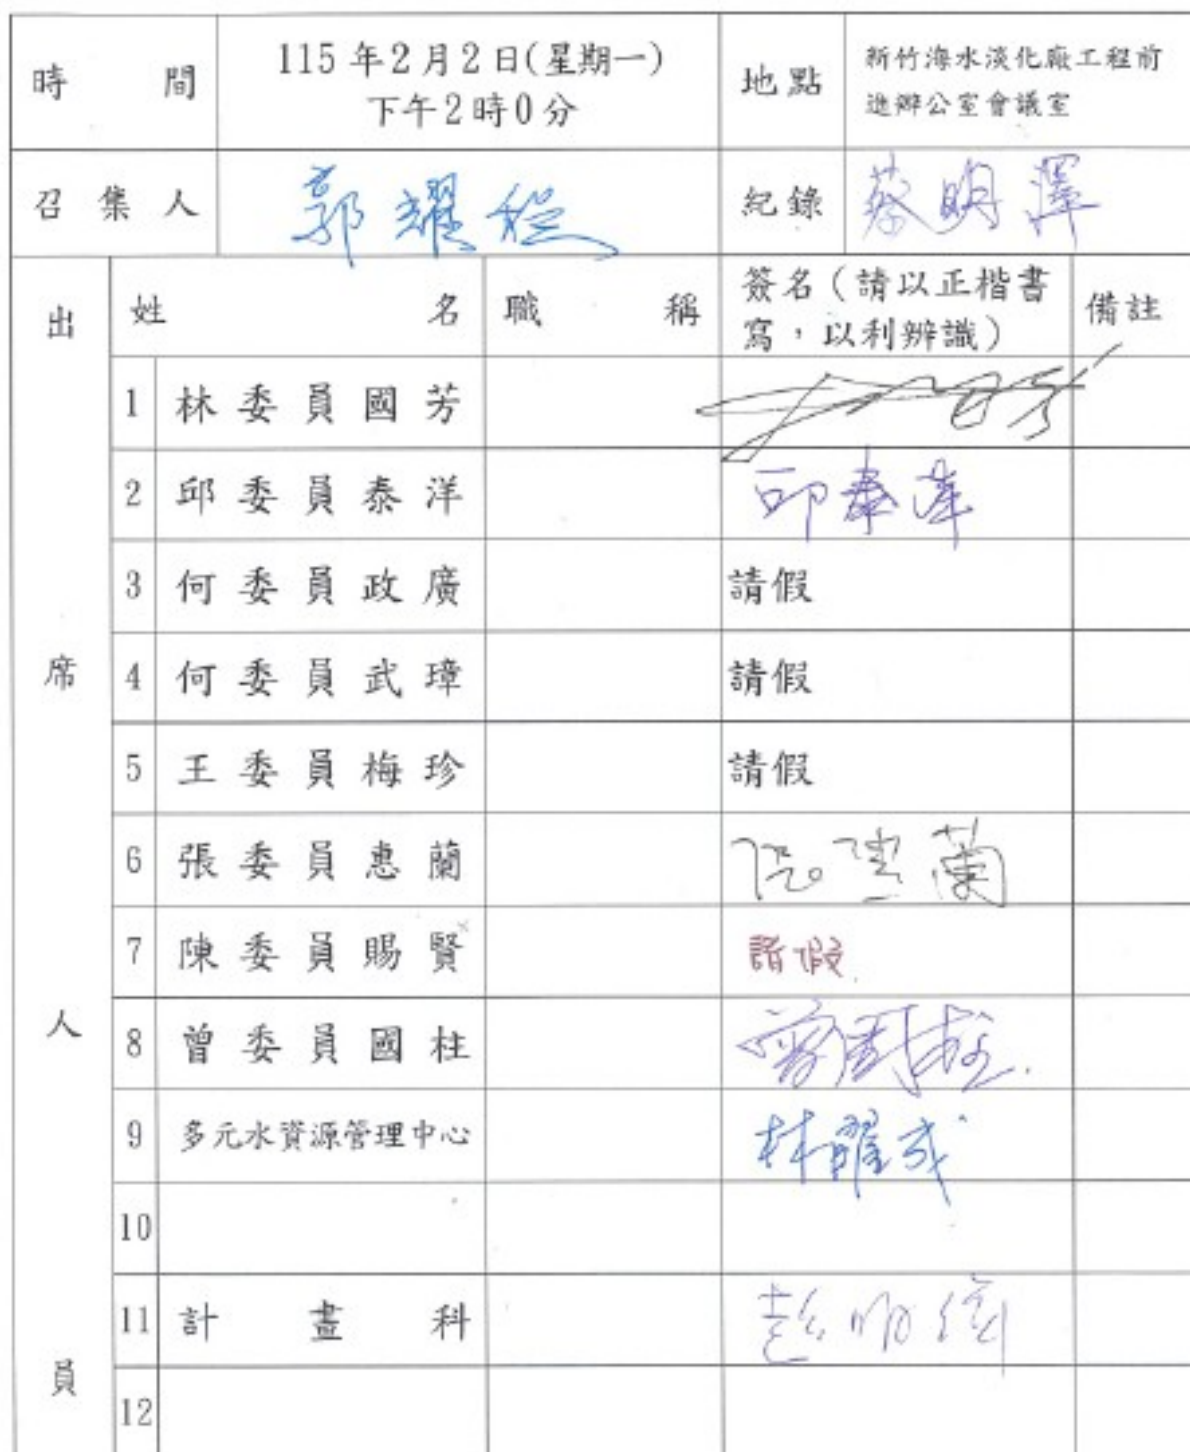 時間 115年2月2日(星期一) 地點 新竹海水淡化廠工程前
下午2時0分 進辦公室會議室
召集人 郭耀程 紀錄 蔡明澤
出席人員
姓名 職稱 簽名(請以正楷書 備註
寫,以利辨識)
1 林委員國芳
2 邱委員泰洋 邱泰洋
3 何委員政廣 請假
4 何委員武璋 請假
5 王委員梅珍 請假
6 張委員惠蘭 張惠蘭
7 陳委員賜賢 請假
8 曾委員國柱 曾國柱
9 多元水資源管理中心 林耀成
10
11 計畫科
12